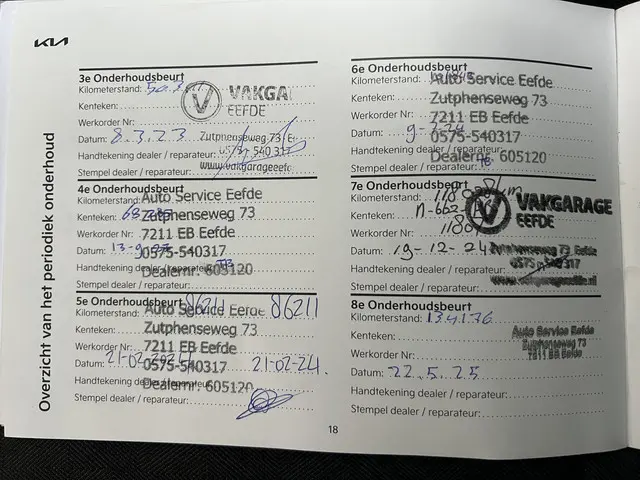 KIA
Overzicht van het periodiek onderhoud
3e Onderhoudsbeurt
Kilometerstand:
Kenteken:
Werkorder Nr:
Datum: 8.3.23
Handtekening dealer / reparateur:
Stempel dealer / reparateur:
VAKGA
EEFDE
Zutphenseweg 73 E
0575 540 317
www.vakgarageeefd
4e Onderhoudsbeurt
Kilometerstand:
Kenteken:
Werkorder Nr:
Datum: 13-9
Handtekening dealer / reparateur:
Stempel dealer / reparateur:
Auto Service Eefde
Zutphenseweg 73
7211 EB Eefde
0575-540317
Dealernr: 605120
5e Onderhoudsbeurt
Kilometerstand: 86211 86211
Kenteken:
Werkorder Nr:
Datum: 21-02-2024 21-02-24.
Handtekening dealer / reparateur:
Stempel dealer / reparateur:
Auto Service Eefde
Zutphenseweg 73
7211 EB Eefde
0575-540317
Dealernr: 605120
6e Onderhoudsbeurt
Kilometerstand:
Kenteken:
Werkorder Nr:
Datum:
Handtekening dealer / reparateur:
Stempel dealer / reparateur:
Auto Service Eefde
Zutphenseweg 73
7211 EB Eefde
0575-540317
Dealernr: 605120
7e Onderhoudsbeurt
Kilometerstand:
Kenteken:
Werkorder Nr:
Datum: 19-12-24
Handtekening dealer / reparateur:
Stempel dealer / reparateur:
VAKGARAGE
EEFDE
Zutphenseweg 73 Eefde
0575 540317
www.vakgarageeefde.nl
8e Onderhoudsbeurt
Kilometerstand: 134176
Kenteken:
Werkorder Nr:
Datum: 22.5.25
Handtekening dealer / reparateur:
Stempel dealer / reparateur:
Auto Service Eefde
Zutphenseweg 73
7211 EB Eefde
18